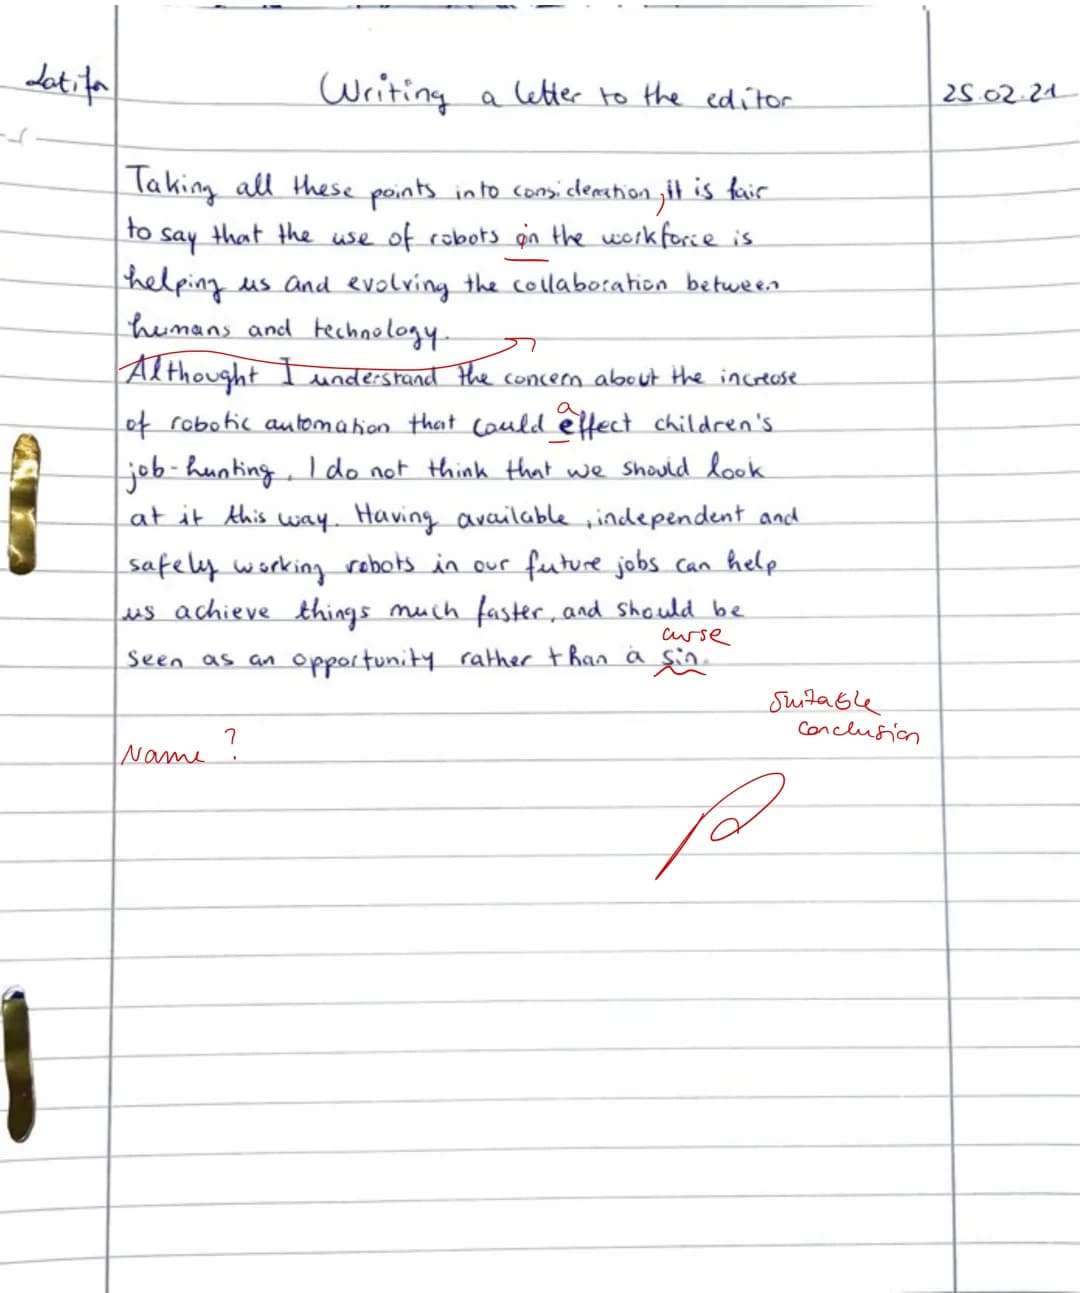 Latifa
Writing a letter to the editor
25.02.21
Taking all these points into consideration, it is fair
to say that the use of robots in the workforce is
helping us and evolving the collaboration between
humans and technology.
Althought I understand the concern about the increase
a
of robotic automation that could effect children's
job-hunting, I do not think that we should look
at it this way. Having available, independent and
safely working robots in our future jobs can help
us achieve things much faster, and should be
curse
seen as an opportunity rather than a sin.
Suitable
conclusion
Name ?